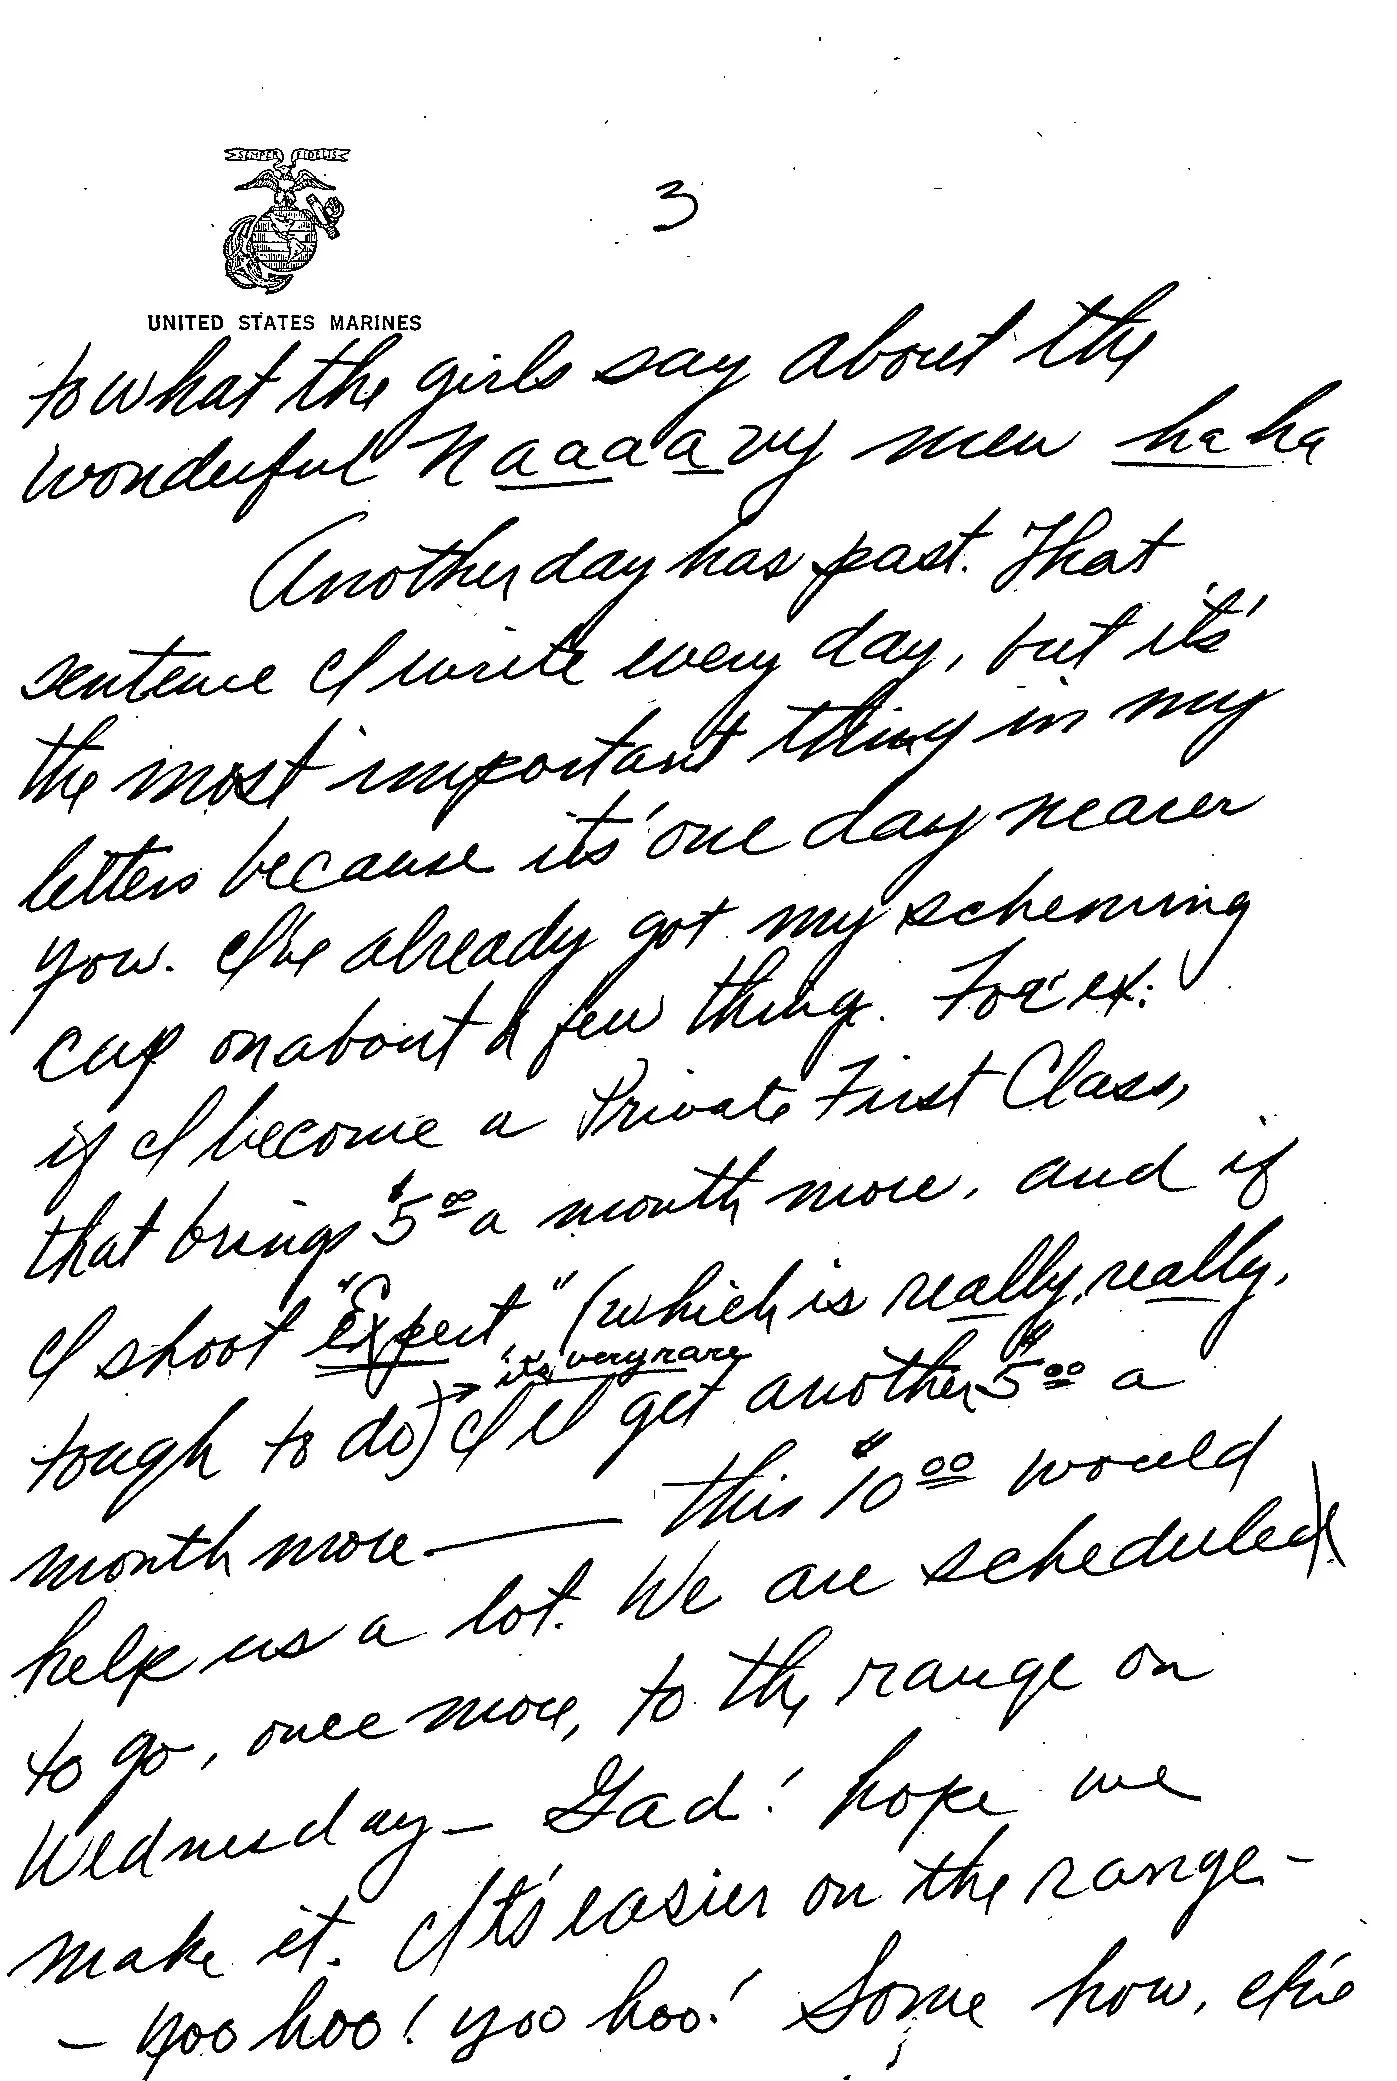 SEMPER FIDELIS
3
UNITED STATES MARINES
to what the girls say about the
wonderful Naaaavy men ha ha
Another day has past. That
sentence I write every day, but it's
the most important thing in my
letters because it's one day nearer
you. I've already got my scheming
cap on about a few things. For ex:
if I become a Private First Class,
that brings $5.00 a month more, and if
I shoot "Expert" (which is really, really,
it's very rare
tough to do) → I'll get another $5.00 a
month more — this $10.00 would
help us a lot. We are scheduled
to go, once more, to the range on
Wednesday — Gad! hope we
make it. It's easier on the range —
— yoo hoo! yoo hoo! Some how, I've